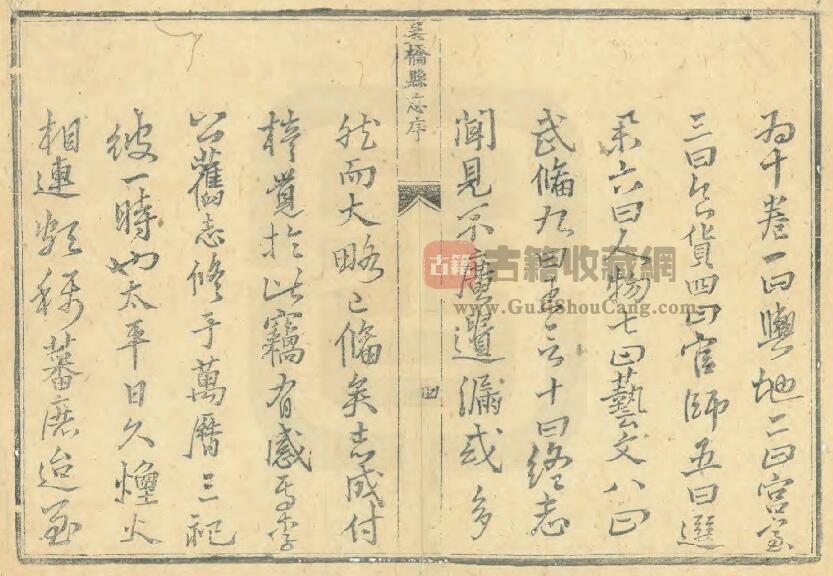 為十卷一曰輿地二曰宮室
三曰食貨四曰官師五曰選
舉六曰人物七曰藝文八曰
武備九曰十曰終志
聞見不廣遺漏或多
吳橋縣志序
四
然而大略已備矣志成付
梓覺於此竊有感焉李
公舊志修于萬曆三祀
彼一時也太平日久煙火
相連頗稱蕃庶迨至
古籍
古籍收藏網
www.GuJiShouCang.com